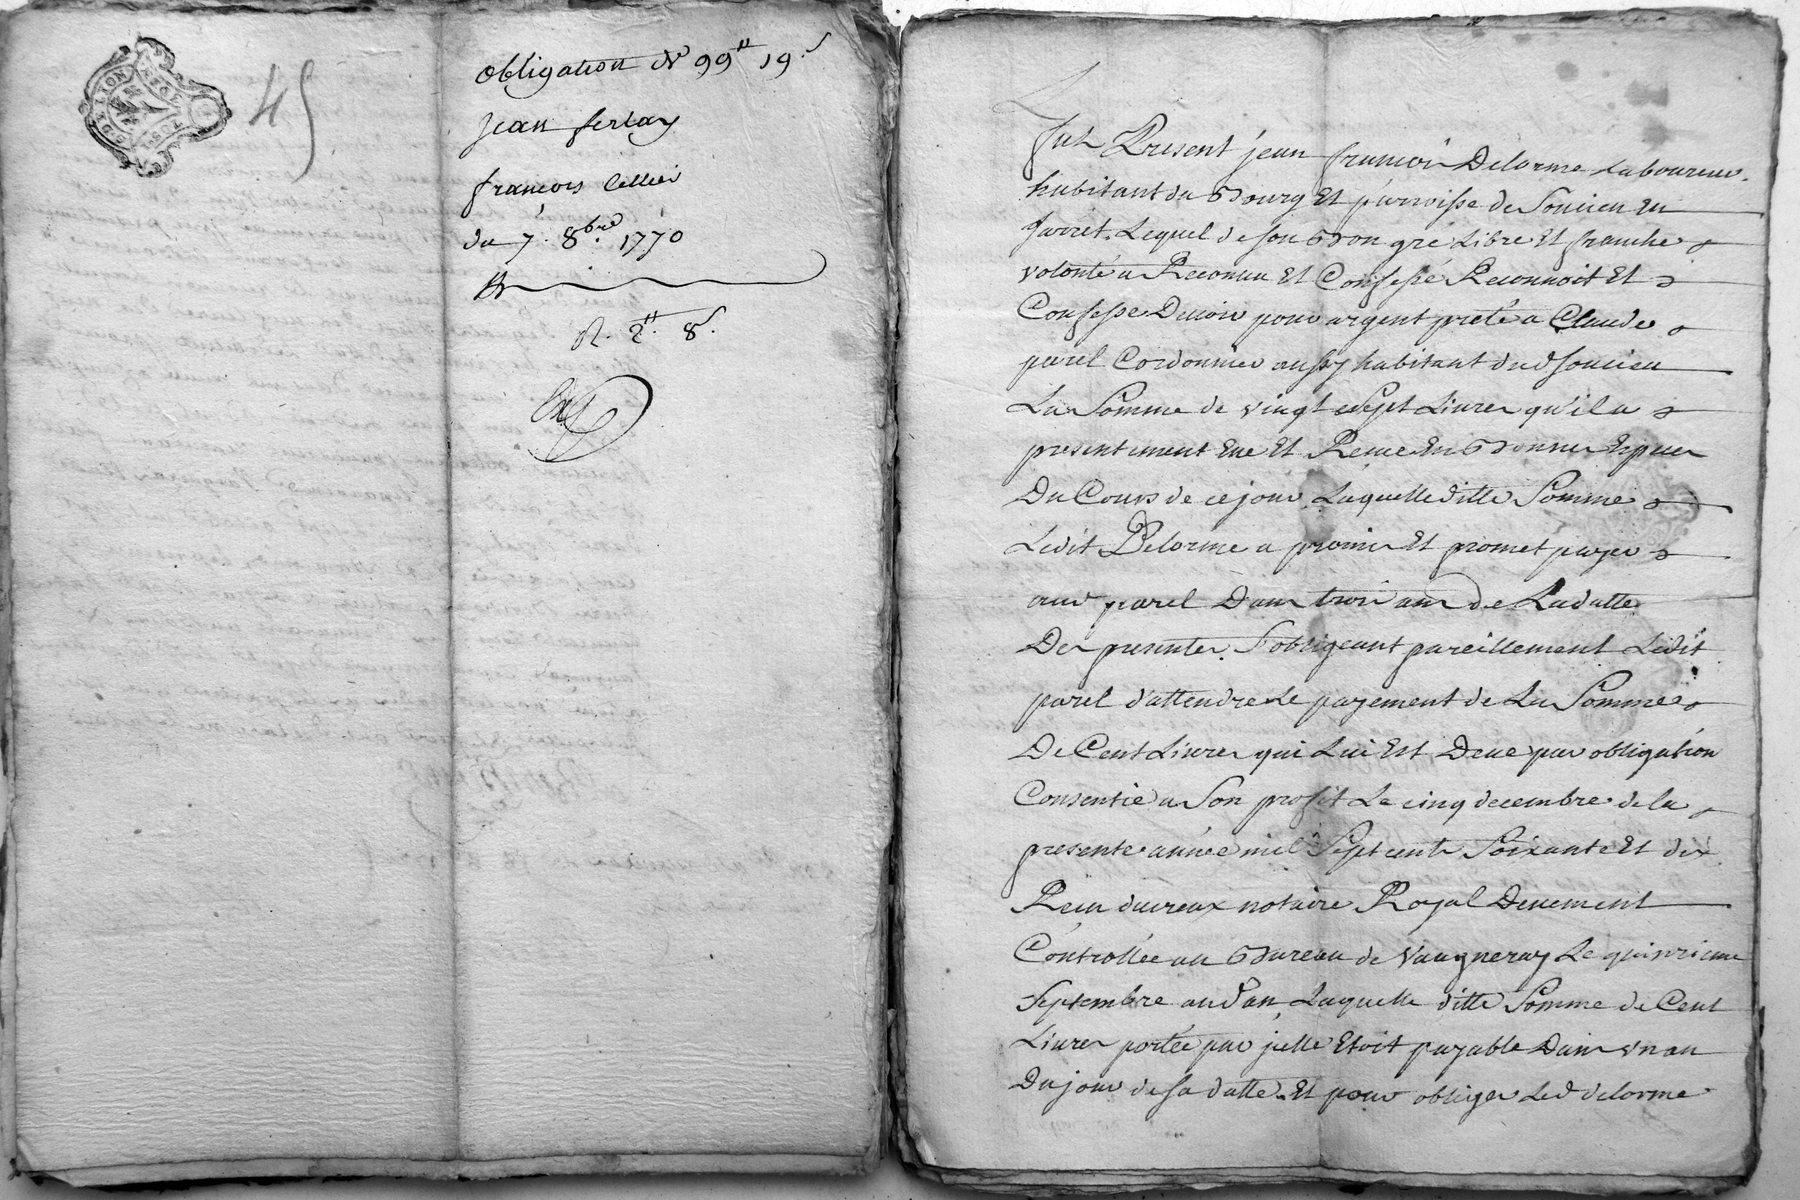 45
obligation de 99ᵗᵗ 19ˢ
jean ferlay
françois Cellier
du 7. 8bre 1770
R. 2ᵗᵗ. 8ˢ.
Fut Present jean françois Delorme Laboureur
habitant du Bourg Et parroisse de Soucieu En
Jarrét, Lequel de son Bon gré Libre Et franche
volonté a Reconnu Et Confessé Reconnoit Et
Confesse Devoir pour argent preté a Claude
parel Cordonnier aussy habitant dud Soucieu
La Somme de vingt Sept Livres qu'il a
presentement Eue Et Receue En Bonnes Especes
Du Cours de ce jour Laquelle ditte Somme
Ledit Delorme a promis Et promet payer
aud parel Dans trois ans de La datte
Des presentes, S'obligeant pareillement Ledit
parel d'attendre Le payement de La Somme
De Cent Livres qui Lui Est Deue par obligation
Consentie a Son profit Le cinq decembre de la
presente année mil Sept cents Soixante Et dix
Receu notaire Royal Deuement
Controllée au Bureau de Vaugneray Le quinzieme
Septembre aud an, Laquelle ditte Somme de Cent
Livres portée par jcelle Etoit payable Dans vn an
Du jour de sa datte. Et pour obliger Led delorme